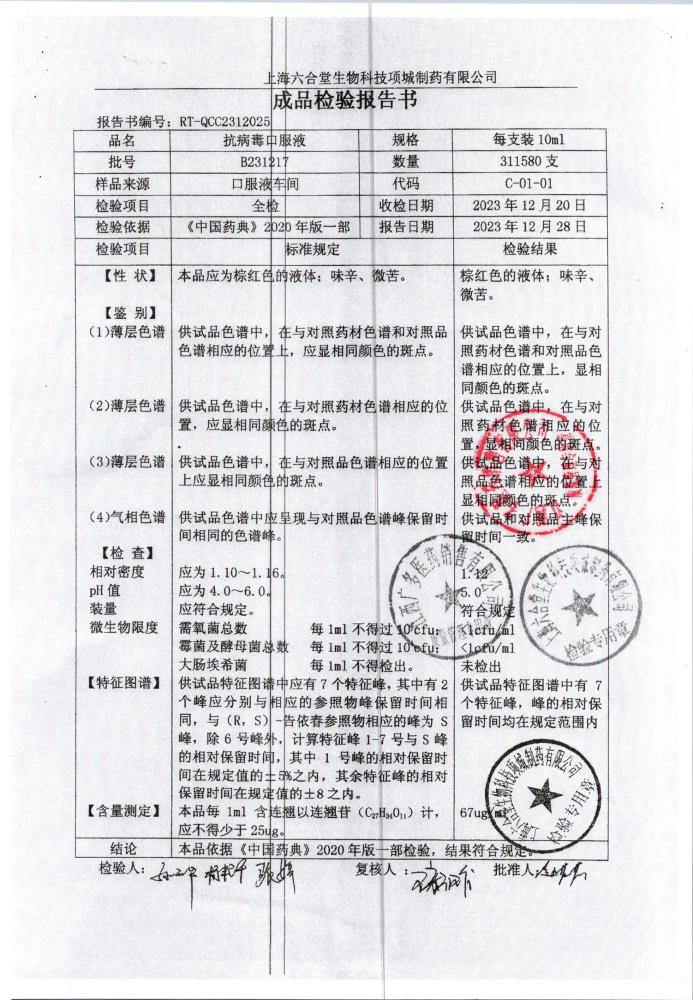 上海六合堂生物科技项城制药有限公司
成品检验报告书
报告书编号：RT-QCC2312025
品名 抗病毒口服液 规格 每支装 10ml
批号 B231217 数量 311580 支
样品来源 口服液车间 代码 C-01-01
检验项目 全检 收检日期 2023 年 12 月 20 日
检验依据 《中国药典》2020 年版一部 报告日期 2023 年 12 月 28 日
检验项目 标准规定 检验结果
【性 状】 本品应为棕红色的液体；味辛、微苦。 棕红色的液体；味辛、
微苦。
【鉴 别】
(1)薄层色谱 供试品色谱中，在与对照药材色谱和对照品 供试品色谱中，在与对
色谱相应的位置上，应显相同颜色的斑点。 照药材色谱和对照品色
谱相应的位置上，显相
同颜色的斑点。
(2)薄层色谱 供试品色谱中，在与对照药材色谱相应的位 供试品色谱中，在与对
置，应显相同颜色的斑点。 照药材色谱相应的位
置，显相同颜色的斑点。
(3)薄层色谱 供试品色谱中，在与对照品色谱相应的位置 供试品色谱中，在与对
上应显相同颜色的斑点。 照品色谱相应的位置上
显相同颜色的斑点。
(4)气相色谱 供试品色谱中应呈现与对照品色谱峰保留时 供试品和对照品主峰保
间相同的色谱峰。 留时间一致。
【检 查】
相对密度 应为 1.10～1.16。 1.12
pH 值 应为 4.0～6.0。 5.0
装量 应符合规定。 符合规定
微生物限度 需氧菌总数 每 1ml 不得过 10²cfu； <1cfu/ml
霉菌及酵母菌总数 每 1ml 不得过 10¹cfu； <1cfu/ml
大肠埃希菌 每 1ml 不得检出。 未检出
【特征图谱】 供试品特征图谱中应有 7 个特征峰，其中有 2 供试品特征图谱中有 7
个峰应分别与相应的参照物峰保留时间相 个特征峰，峰的相对保
同，与（R，S）-告依春参照物相应的峰为 S 留时间均在规定范围内
峰，除 6 号峰外，计算特征峰 1-7 号与 S 峰
的相对保留时间，其中 1 号峰的相对保留时
间在规定值的±5%之内，其余特征峰的相对
保留时间在规定值的±8 之内。
【含量测定】 本品每 1ml 含连翘以连翘苷（C₂₇H₃₄O₁₁）计， 67ug/ml
应不得少于 25ug。
结论 本品依据《中国药典》2020 年版一部检验，结果符合规定。
检验人： 复核人： 批准人：
江西广多医药销售有限公司
上海六合堂生物科技项城制药有限公司
检验专用章
上海六合堂生物科技项城制药有限公司
检验专用章